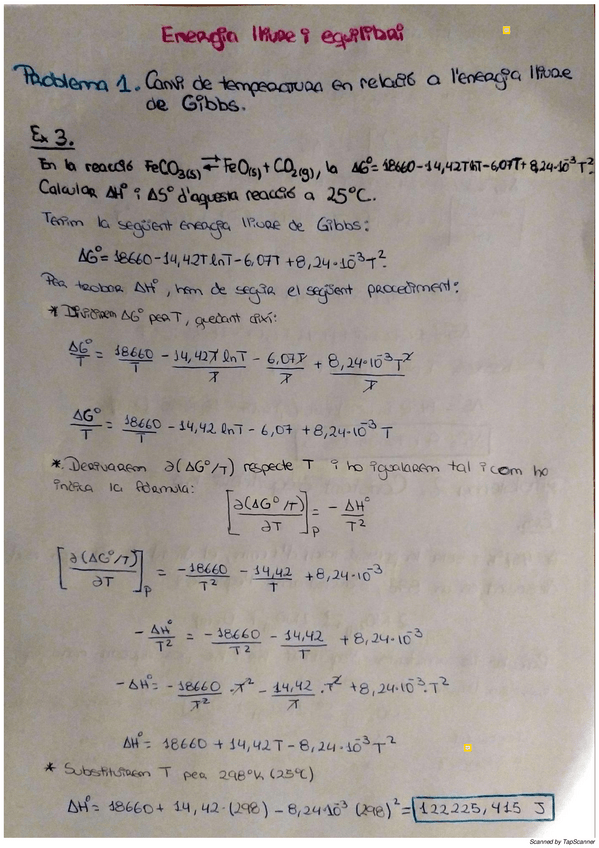 Energia lliure i equilibri
Problema 1. Canvi de temperatura en relació a l'energia lliure
de Gibbs.
Ex 3.
En la reacció FeCO₃(s) ⇄ FeO(s) + CO₂(g), la ΔG° = 18660 - 14,42TlnT - 6,07T + 8,24·10⁻³T².
Calcular ΔH° i ΔS° d'aquesta reacció a 25°C.
Tenim la següent energia lliure de Gibbs:
ΔG° = 18660 - 14,42T lnT - 6,07T + 8,24·10⁻³T².
Per trobar ΔH°, hem de seguir el següent procediment:
* Dividirem ΔG° per T, quedant així:
ΔG°/T = 18660/T - 14,42T lnT/T - 6,07T/T + 8,24·10⁻³T²/T
ΔG°/T = 18660/T - 14,42 lnT - 6,07 + 8,24·10⁻³ T
*. Derivarem ∂(ΔG°/T) respecte T i ho igualarem tal i com ho
indica la fórmula: [∂(ΔG°/T)/∂T]p = - ΔH°/T²
[∂(ΔG°/T)/∂T]p = -18660/T² - 14,42/T + 8,24·10⁻³
- ΔH°/T² = -18660/T² - 14,42/T + 8,24·10⁻³
- ΔH° = -18660/T² · T² - 14,42/T · T² + 8,24·10⁻³ · T²
ΔH° = 18660 + 14,42T - 8,24·10⁻³T²
* Substituirem T per 298°K (25°C)
ΔH° = 18660 + 14,42·(298) - 8,24·10⁻³ (298)² = 122225,415 J
Scanned by TapScanner